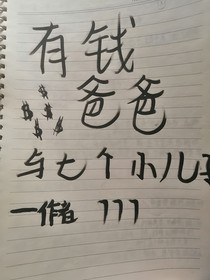 有钱
$ $ $ $ $
爸爸
与七个小儿子
一作者 777